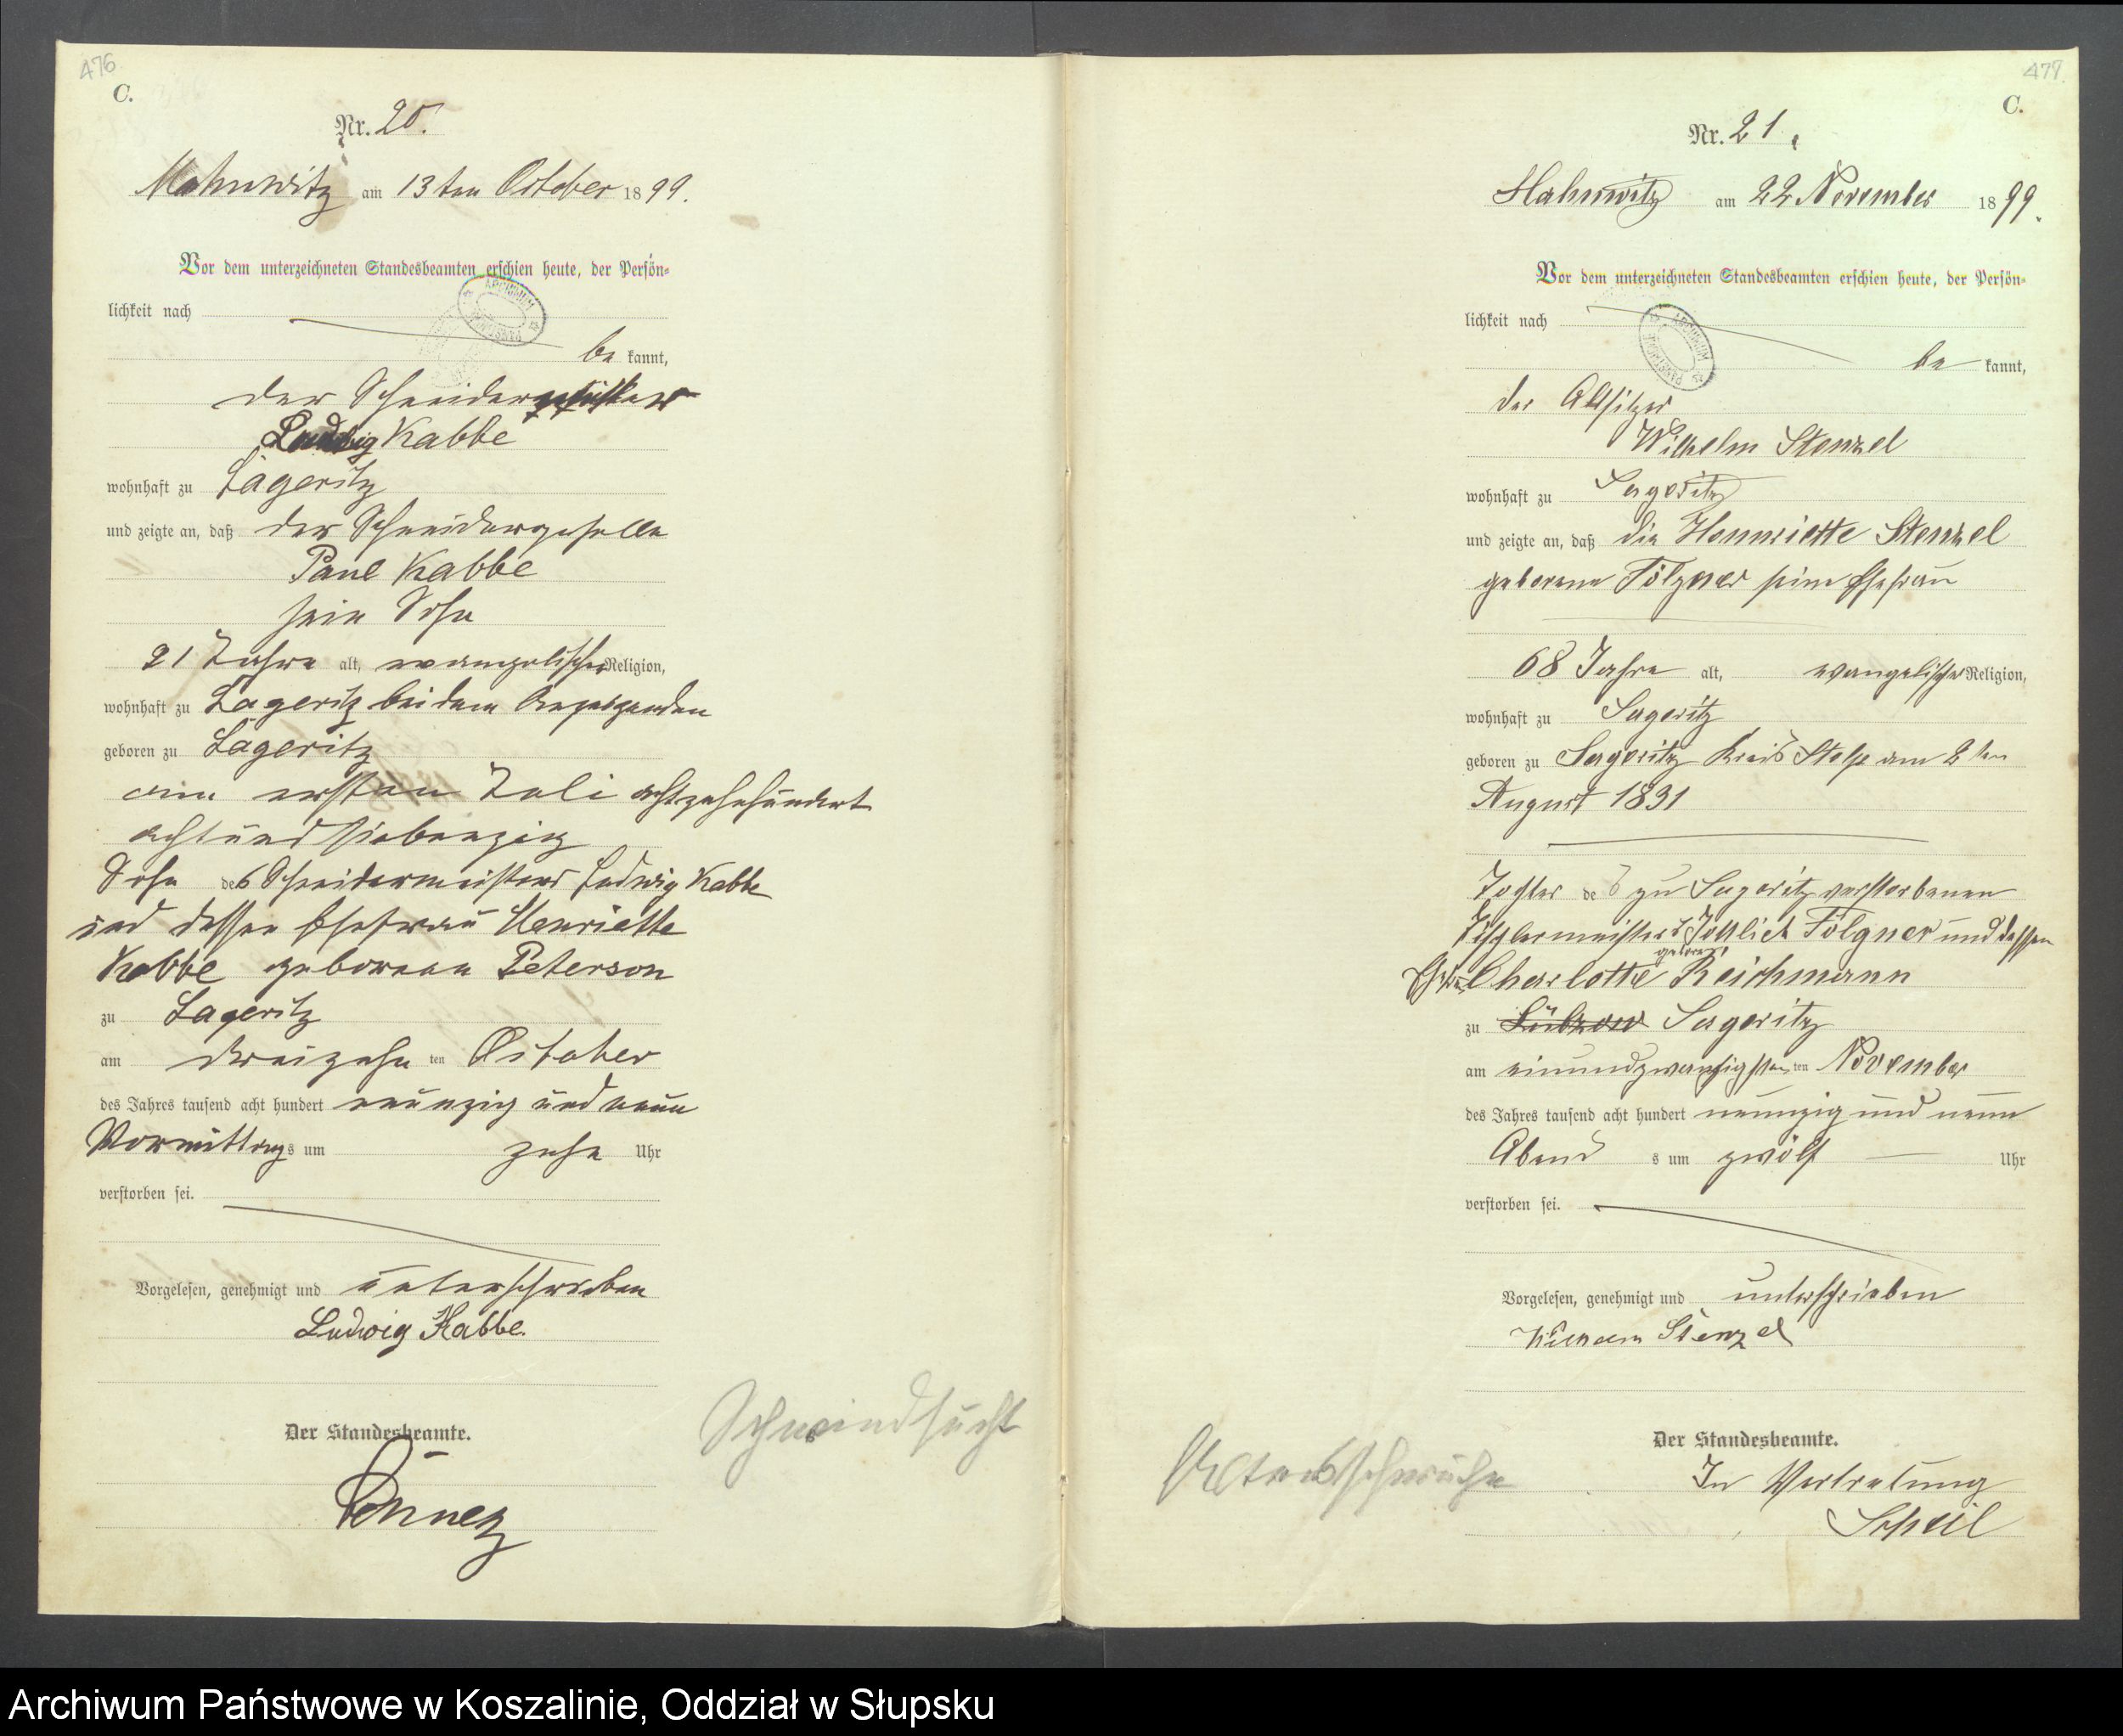 476
C.
Nr. 20.
Mahnwitz am 13ten October 1899.
Vor dem unterzeichneten Standesbeamten erschien heute, der Persön=
lichkeit nach
be kannt,
der Schneidermeister
Ludwig Kabbe
wohnhaft zu Lageritz
und zeigte an, daß der Schneidergeselle
Paul Kabbe
sein Sohn
21 Jahre alt, evangelischer Religion,
wohnhaft zu Lageritz bei dem
geboren zu Lageritz
am ersten Juli achtzehnhundert
achtundsiebenzig
Sohn des Schneidermeisters Ludwig Kabbe
und dessen Ehefrau Henriette
Kabbe geborenen Peterson
zu Lageritz
am dreizehn ten October
des Jahres tausend acht hundert neunzig und neun
Vormittags um zehn Uhr
verstorben sei.
Vorgelesen, genehmigt und unterschrieben
Ludwig Kabbe.
Schwindsucht
Der Standesbeamte.
477
C.
Nr. 21.
Mahnwitz am 22 November 1899.
Vor dem unterzeichneten Standesbeamten erschien heute, der Persön=
lichkeit nach
be kannt,
der Altsitzer
Wilhelm Stenzel
wohnhaft zu Sageritz
und zeigte an, daß die Hennriette Stenzel
geborene Fölgner seine Ehefrau
68 Jahre alt, evangelischer Religion,
wohnhaft zu Sageritz
geboren zu Sageritz Kreis Stolp am 2ten
August 1831
Tochter des zu Sageritz verstorbenen
Tischlermeisters Gottlieb Fölgner und dessen
Ehefrau Charlotte geboren Reichmann
zu Lübzow Sageritz
am einundzwanzigsten ten November
des Jahres tausend acht hundert neunzig und neun
Abend s um zwölf Uhr
verstorben sei.
Vorgelesen, genehmigt und unterschrieben
Wilhelm Stenzel
Altersschwäche
Der Standesbeamte.
In Vertretung
Scheil
Archiwum Państwowe w Koszalinie, Oddział w Słupsku